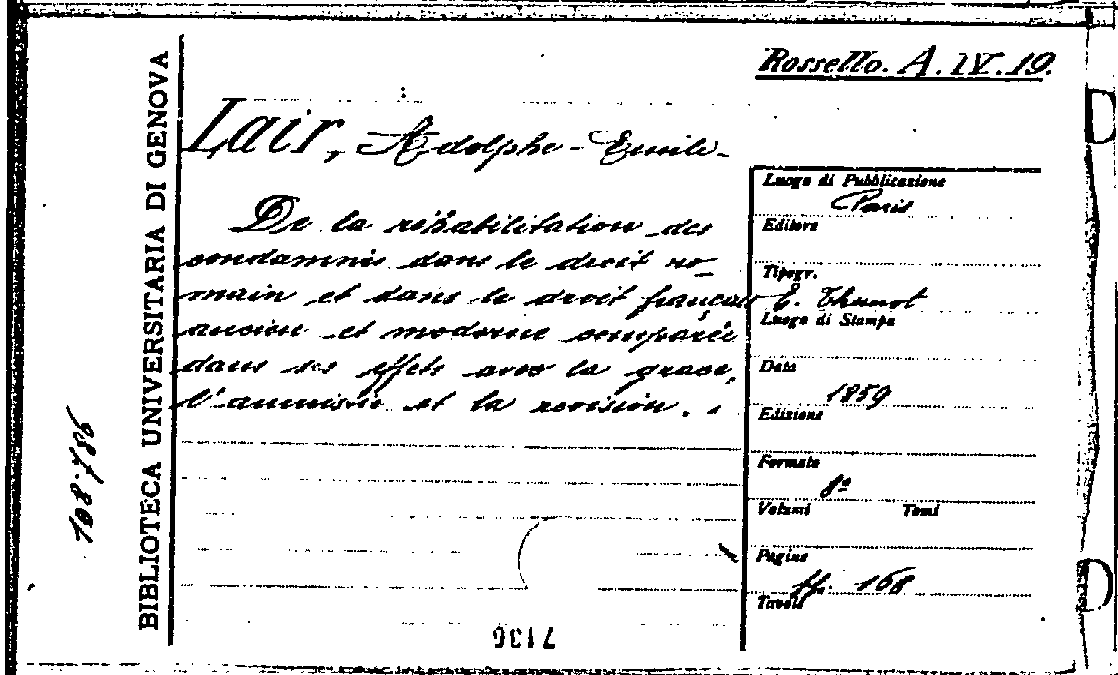 Rossello. A. IV. 19.
Lair, Adolphe-Emile-
De la réhabilitation des
condamnés dans le droit ro-
main et dans le droit français
ancien et moderne comparée
dans ses effets avec la grace,
l'amnistie et la revision.
BIBLIOTECA UNIVERSITARIA DI GENOVA
198.786
Luogo di Pubblicazione
Paris
Editore
Tipogr.
E. Thunot
Luogo di Stampa
Data
1859
Edizione
Formato
8º
Volumi Tomi
Pagine
168
Tavole
7136